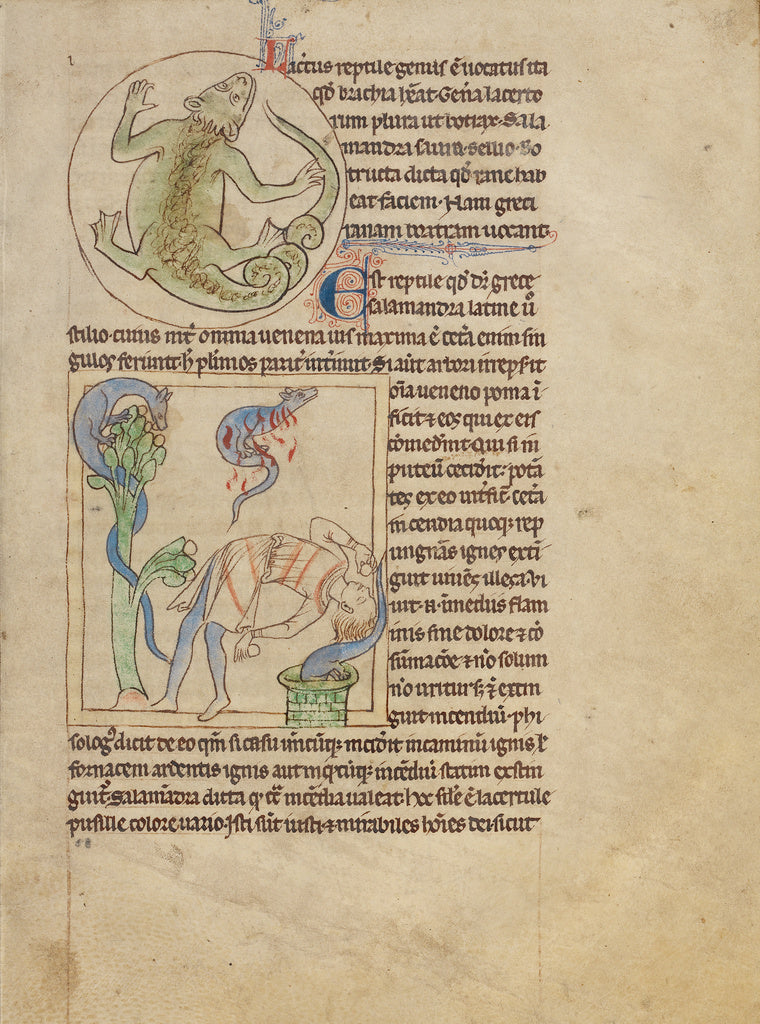 Lac̄tus reptile genus ē uocatus ita
qd̄ brachia hēat. Geña lacerto
rum plura ut botrax. Sala
mandra saura. sellio. Bo
tructa dicta qd̄ rane hab
eat faciem. Nam greci
ranam botram uocant.
Est reptile qd̄ dr̄ grece
salamandra latine ū
stilio. cuius int̄ omnia uenena uis maxima ē cet̄a enim sin
gulos feriunt. h̄ plīmos parit̄ int̄imit. Si aūt arbori irrepsit
oīa ueneno poma ī
ficit ⁊ eos qui ex eis
comedīnt. Qui si in
puteū cecidit. potā
tes ex eo int̄fic̄. cet̄a
incendia quoq; rep
ungnās ignes exti
guit. uniēs illesa. Vi
uit. n. ī medus flam
inis sine dolore ⁊ cō
sūmacōe ⁊ nō solum
nō uritur s; ⁊ extin
guit incendiū. phi
solog⁹ dicit de eo qm̄ si casu ūncūq; incidit in caminū ignis ł
fornacem ardentis ignis aut in qcūq; incēdiū statim exstin
guit̄. Salamādra dicta q. c̄t incēdia ualeat. hec sīlē ē lacertule
pusille colore uario. Isti sūt iusti ⁊ mirabiles hoīes dei sicut